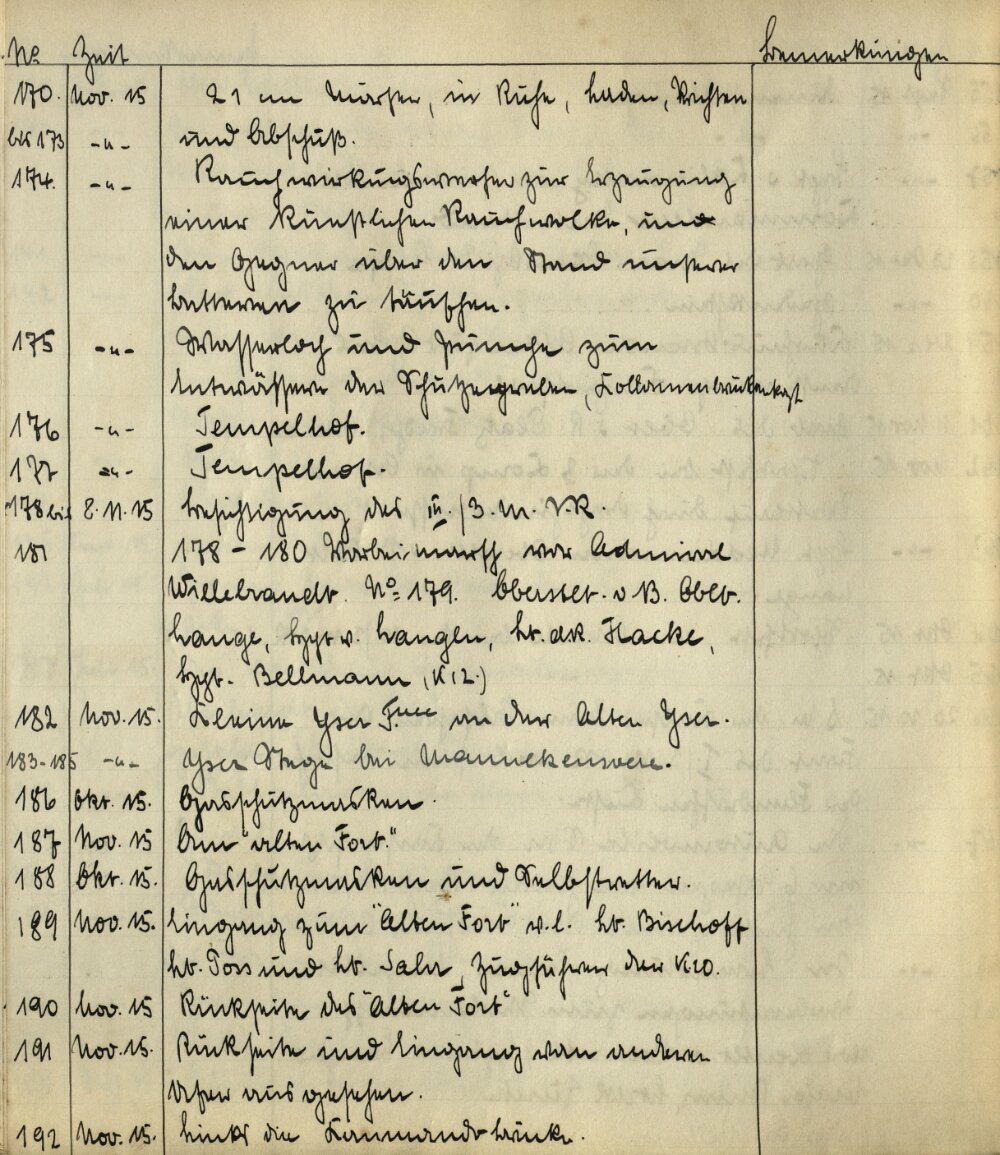 No Zeit Bemerkungen
170. Nov. 15 21 cm Mörser, in Ruhe, Laden, Richten
bis 173 -"- und Abschuß.
174. -"- Rauchwirkungswerfer zur Erzeugung
einer künstlichen Rauchwolke, um
den Gegner über den Stand unserer
Batterien zu täuschen.
175 -"- Wasserloch und Pumpe zum
Entwässern der Schützengräben,
176 -"- Tempelhof.
177 -"- Tempelhof.
178 bis 8.11.15 Besichtigung des III./3. M. I.R
181 178 - 180 Vorbeimarsch vor Admiral
Willebrandt. No 179. Oberstlt. v B. Oblt.
Lange, Hptm. v. Langen, Lt. Hacke,
Bellmann (K 12.)
182 Nov. 15. Kleine Yser an der Alten Yser.
183-185 -"- Yser Stege bei Mannekensvere.
186 Okt. 15. Gasschutzmasken.
187 Nov. 15 Am "alten Fort."
188 Okt. 15. Gasschutzmasken und Selbstretter.
189 Nov. 15. Eingang zum "Alten Fort" v.l. Lt. Bischoff
Lt. Toss und Lt. Sahr, Zugführer der K10.
190 Nov. 15 Rückseite des "Alten Fort"
191 Nov. 15. Rückseite und Eingang vom anderen
Ufer aus gesehen.
192 Nov. 15. Links die Kommandobrücke.